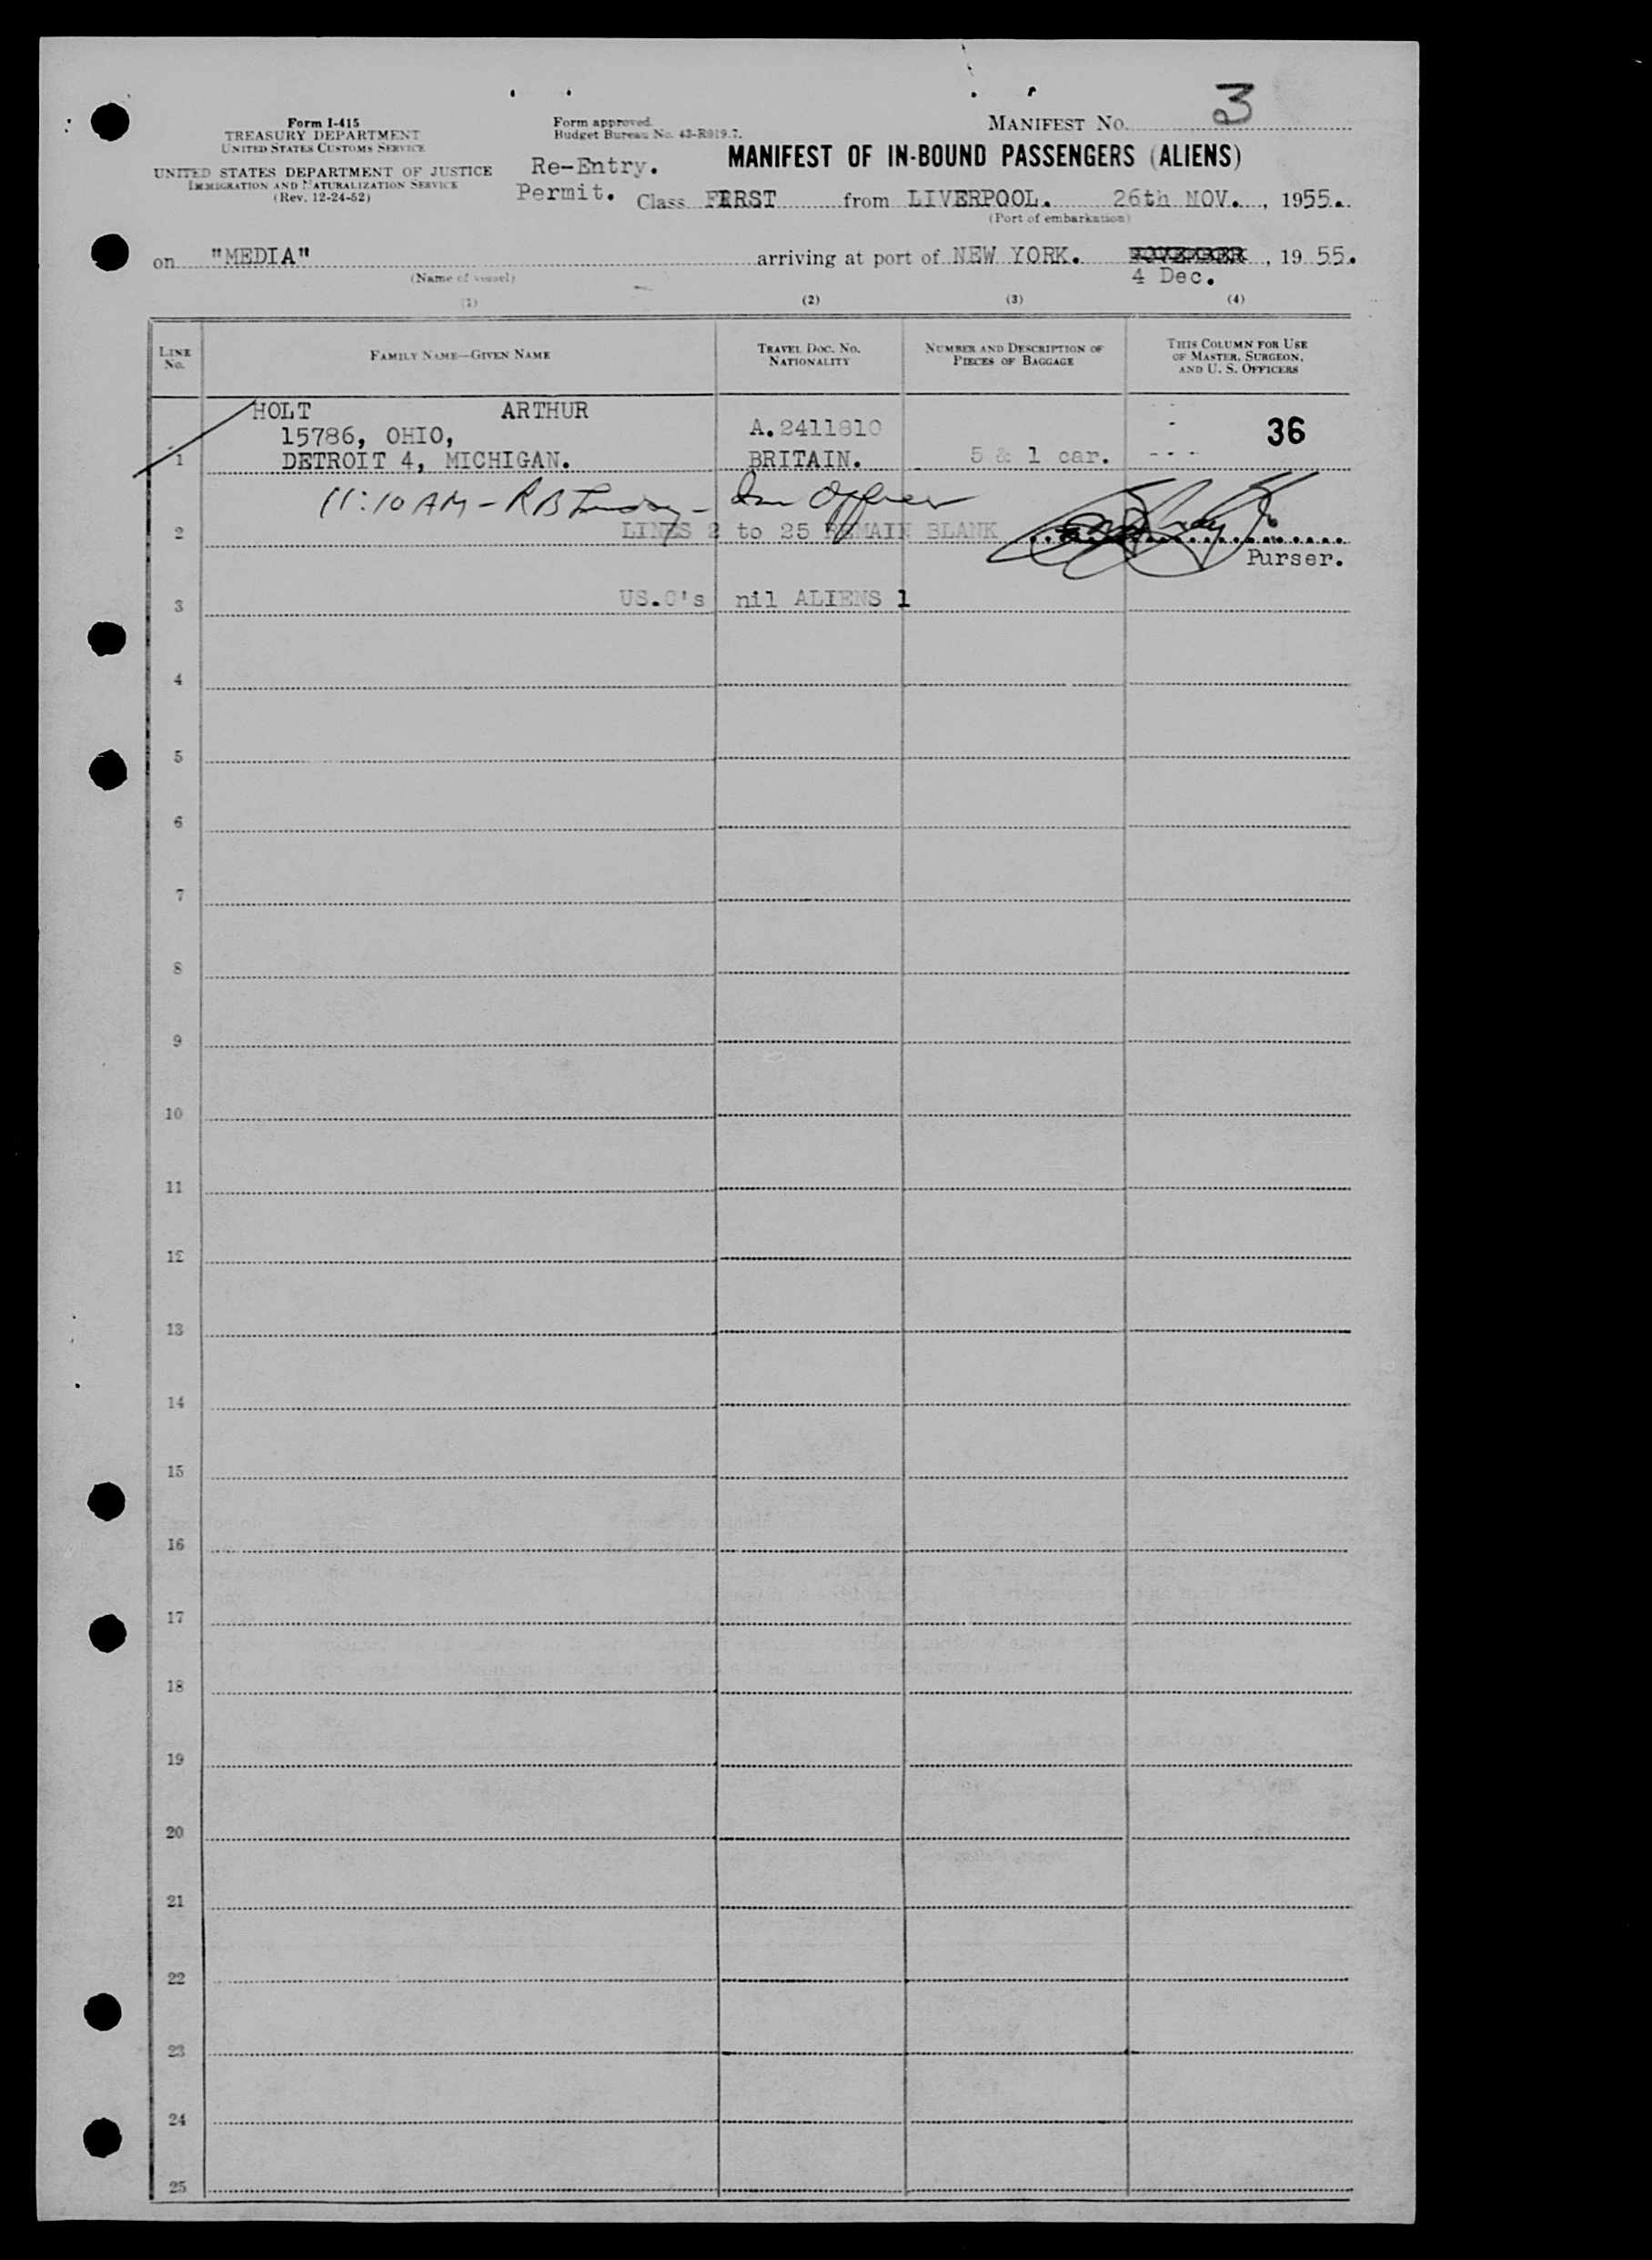 Form I-415
TREASURY DEPARTMENT
UNITED STATES CUSTOMS SERVICE
UNITED STATES DEPARTMENT OF JUSTICE
IMMIGRATION AND NATURALIZATION SERVICE
(Rev. 12-24-52)
Form approved.
Budget Bureau No. 43-R019.7.
MANIFEST NO. 3
Re-Entry.
Permit.
MANIFEST OF IN-BOUND PASSENGERS (ALIENS)
Class FIRST from LIVERPOOL. 26th NOV. , 1955.
(Port of embarkation)
on "MEDIA" arriving at port of NEW YORK. NOVEMBER , 19 55.
(Name of vessel) 4 Dec.
(1) (2) (3) (4)
LINE No. FAMILY NAME—GIVEN NAME TRAVEL DOC. NO. NATIONALITY NUMBER AND DESCRIPTION OF PIECES OF BAGGAGE THIS COLUMN FOR USE OF MASTER, SURGEON, AND U. S. OFFICERS
HOLT ARTHUR
15786, OHIO, A.2411810 36
1 DETROIT 4, MICHIGAN. BRITAIN. 5 & 1 car. - - -
11:10 AM - R B - Im Officer
2 LINES 2 to 25 REMAIN BLANK
Purser.
3 US.C's nil ALIENS 1
4
5
6
7
8
9
10
11
12
13
14
15
16
17
18
19
20
21
22
23
24
25